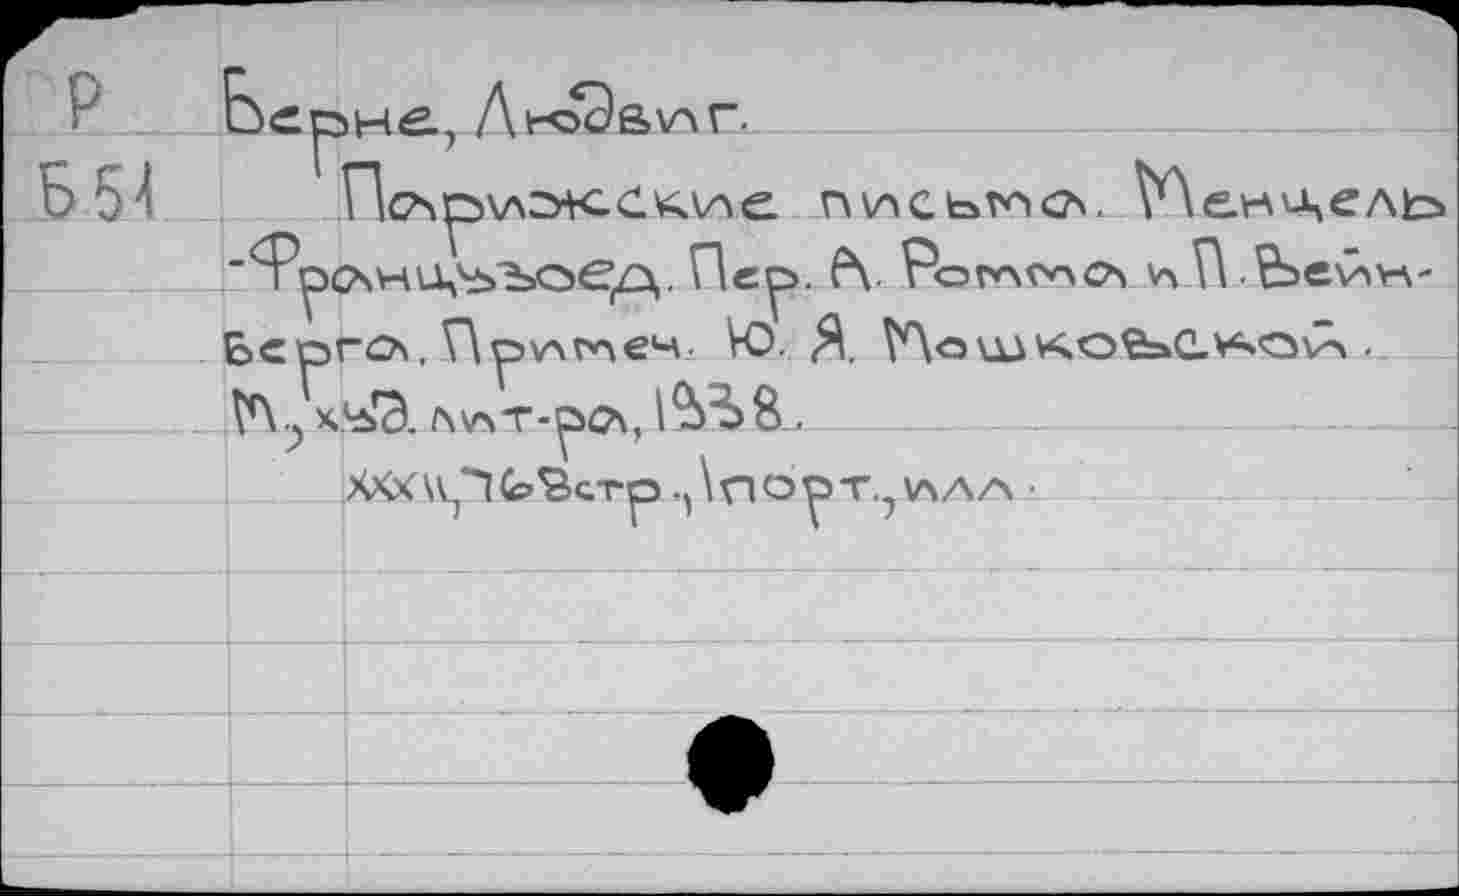 Р Берне, Людвиг.
Б51 Парижские письма. Менцель
-Французоед. Пер. А. Ромма и П. Вейн-
берга. Примеч. Ю. Я. Мошковской.
М., худ. лит-ра, 1938.
XXXII, 768 стр., 1 порт., илл.